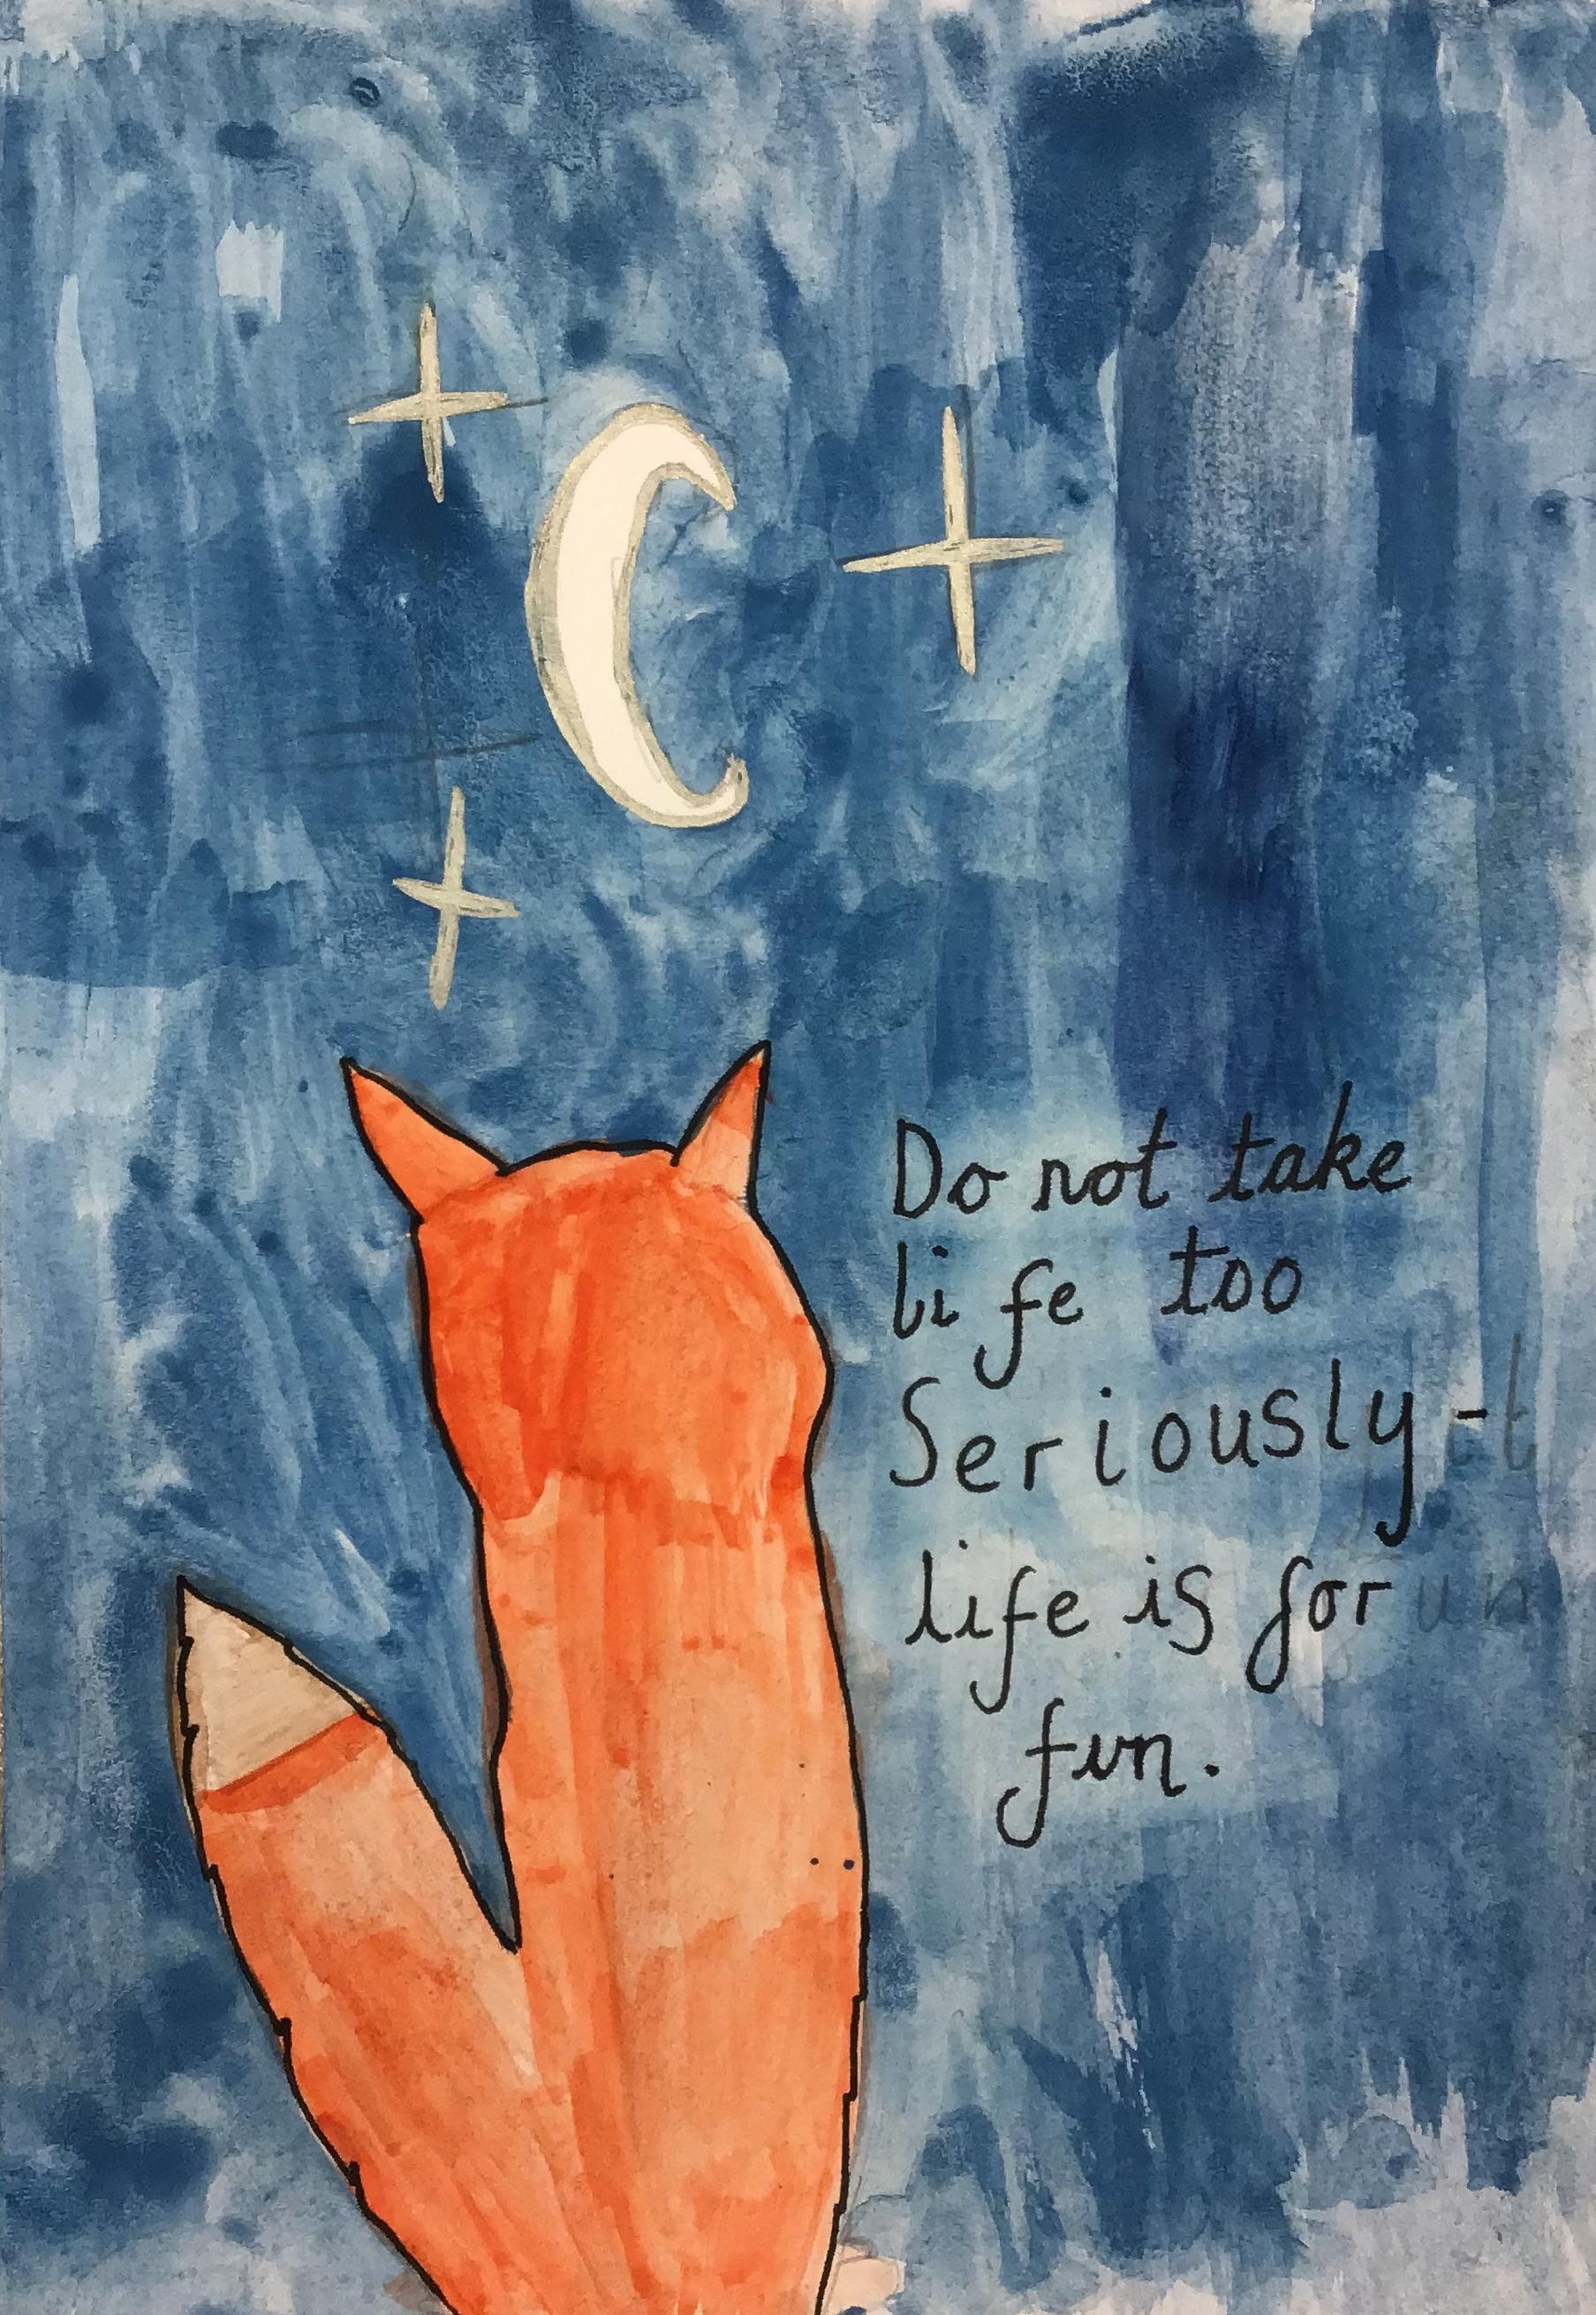 Do not take
life too
Seriously -
life is for
fun.